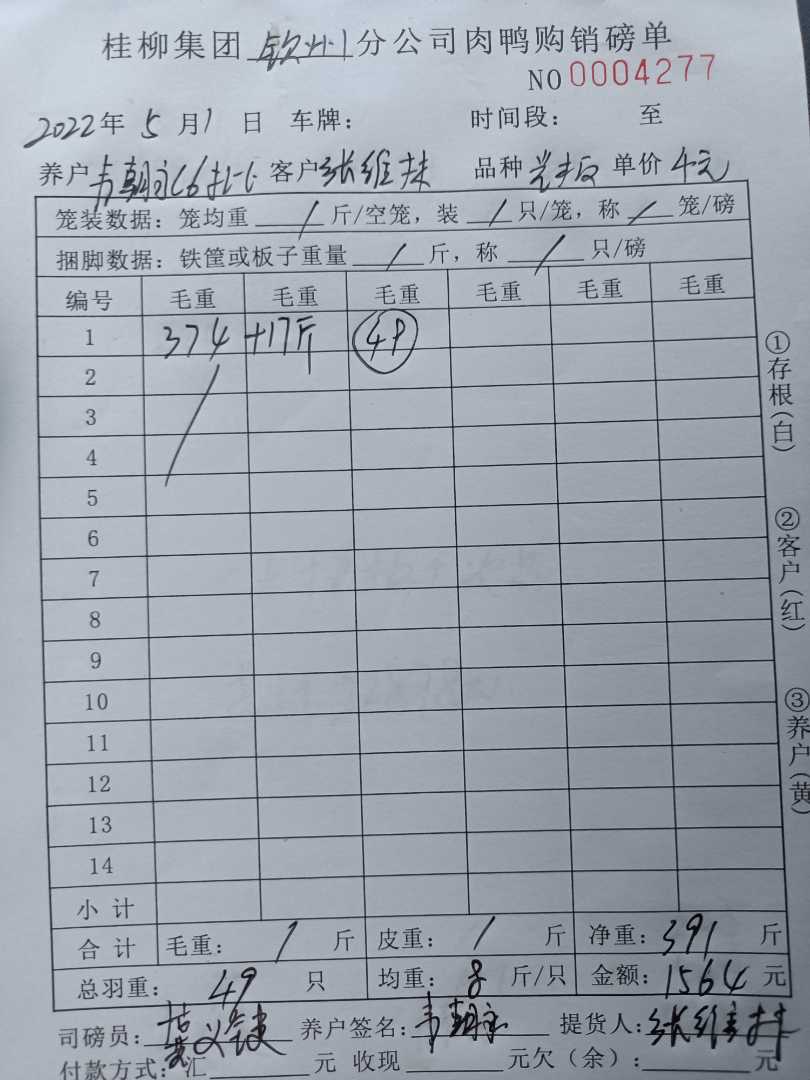 桂柳集团 钦州 分公司肉鸭购销磅单
NO 0004277
2022年 5 月 1 日 车牌： 时间段： 至
养户 韦朝 客户 张维 品种 单价 4元
笼装数据：笼均重 / 斤/空笼，装 / 只/笼，称 / 笼/磅
捆脚数据：铁筐或板子重量 / 斤，称 / 只/磅
编号 毛重 毛重 毛重 毛重 毛重 毛重
1 374 +17斤 49
2
3
4
5
6
7
8
9
10
11
12
13
14
小计
合计 毛重： / 斤 皮重： / 斤 净重： 391 斤
总羽重： 49 只 均重： 8 斤/只 金额： 1564 元
司磅员： 养户签名： 韦朝 提货人： 张维
付款方式：汇 元 收现 元欠（余）： 元
①存根（白）
②客户（红）
③养户（黄）